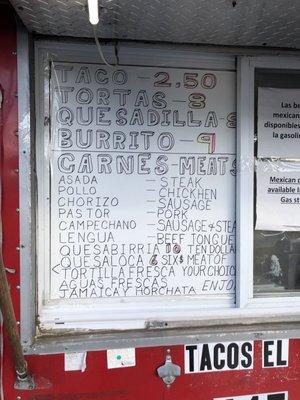 TACO - 2,50
TORTAS - 8
QUESADILLA-8
BURRITO - 9
CARNES-MEATS
ASADA - STEAK
POLLO - CHICKHEN
CHORIZO - SAUSAGE
PASTOR - PORK
CAMPECHANO - SAUSAGE+STEAK
LENGUA - BEEF TONGUE
QUESABIRRIA 10 TEN DOLLA
QUESALOCA 6 SIX$ MEAT OF
TORTILLA FRESCA YOUR CHOICE
AGUAS FRESCAS
JAMAICA Y HORCHATA ENJO
Las be
mexican
disponibles
la gasoli
Mexican
available i
Gas st
TACOS EL